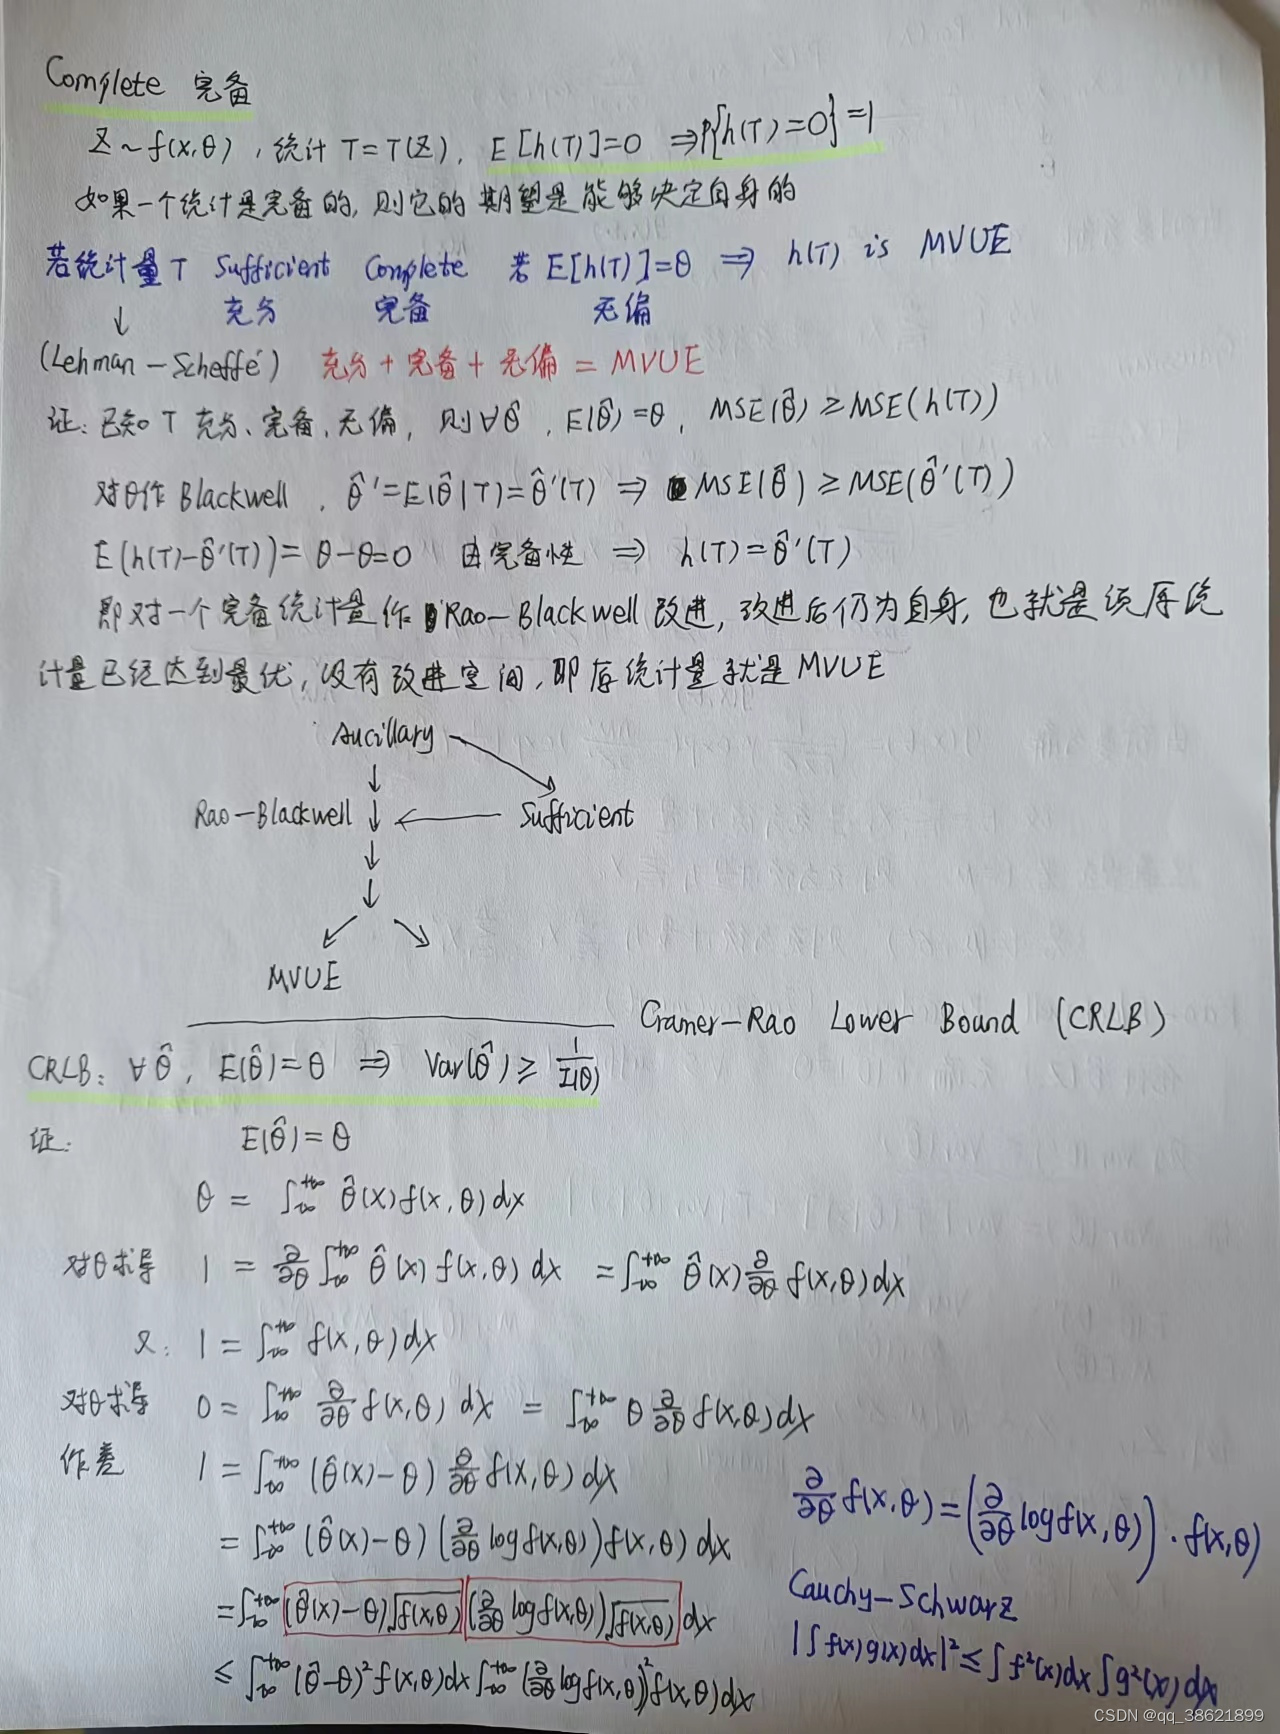 Complete 完备
Z ~ f(x,θ), 统计 T=T(Z), E[h(T)]=0 ⇒ P{h(T)=0}=1
如果一个统计是完备的, 则它的期望是能够决定自身的
若统计量T Sufficient Complete 若 E[h(T)]=θ ⇒ h(T) is MVUE
↓ 充分 完备 无偏
(Lehman-Scheffé) 充分+完备+无偏=MVUE
证: 已知T充分、完备、无偏, 则∀θ̂, E(θ̂)=θ, MSE(θ̂)≥MSE(h(T))
对θ作Blackwell, θ̂'=E(θ̂|T)=θ̂'(T) ⇒ MSE(θ̂)≥MSE(θ̂'(T))
E(h(T)-θ̂'(T))=θ-θ=0 由完备性 ⇒ h(T)=θ̂'(T)
即对一个完备统计量作Rao-Blackwell改进, 改进后仍为自身, 也就是该原统
计量已经达到最优, 没有改进空间, 即原统计量就是MVUE
Aucillary
Rao-Blackwell ↓ ← Sufficient
↓
↓
↙ ↘
MVUE
Cramer-Rao Lower Bound (CRLB)
CRLB: ∀θ̂, E(θ̂)=θ ⇒ Var(θ̂) ≥ 1/I(θ)
证: E(θ̂)=θ
θ = ∫_{-∞}^{+∞} θ̂(x)f(x,θ)dx
对θ求导 1 = ∂/∂θ ∫_{-∞}^{+∞} θ̂(x)f(x,θ)dx = ∫_{-∞}^{+∞} θ̂(x) ∂/∂θ f(x,θ)dx
又: 1 = ∫_{-∞}^{+∞} f(x,θ)dx
对θ求导 0 = ∫_{-∞}^{+∞} ∂/∂θ f(x,θ)dx = ∫_{-∞}^{+∞} θ ∂/∂θ f(x,θ)dx
作差 1 = ∫_{-∞}^{+∞} (θ̂(x)-θ) ∂/∂θ f(x,θ)dx
∂/∂θ f(x,θ) = (∂/∂θ log f(x,θ))·f(x,θ)
= ∫_{-∞}^{+∞} (θ̂(x)-θ)(∂/∂θ log f(x,θ))f(x,θ)dx
= ∫_{-∞}^{+∞} (θ̂(x)-θ)√f(x,θ) (∂/∂θ log f(x,θ))√f(x,θ) dx
Cauchy-Schwarz
|∫f(x)g(x)dx|² ≤ ∫f²(x)dx ∫g²(x)dx
≤ ∫_{-∞}^{+∞} (θ̂-θ)²f(x,θ)dx ∫_{-∞}^{+∞} (∂/∂θ log f(x,θ))²f(x,θ)dx
CSDN @qq_38621899